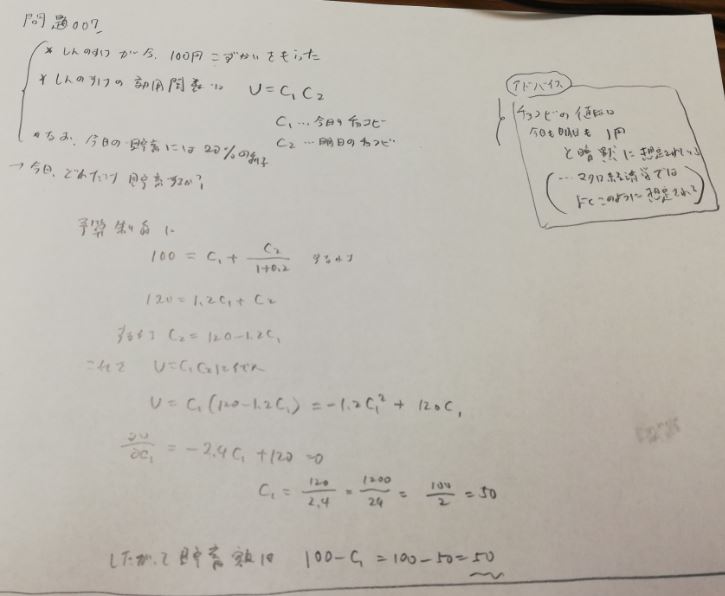 問題007
* しんのすけが今、100円こずかいをもらった
* しんのすけの効用関数は U=C₁C₂
C₁…今日のチョコビ
C₂…明日のチョコビ
*なお、今日の貯蓄には20%の利子
→今日、どれだけ貯蓄するか?
アドバイス
チョコビの値段は
今日も明日も 1円
と暗黙に想定されている
(…マクロ経済学では
よくこのように想定される)
予算制約は
100 = C₁ + C₂/(1+0.2) すなわち
120 = 1.2C₁ + C₂
すなわち C₂ = 120-1.2C₁
これを U=C₁C₂に代入
U = C₁(120-1.2C₁) = -1.2C₁² + 120C₁
∂U/∂C₁ = -2.4C₁ + 120 = 0
C₁ = 120/2.4 = 1200/24 = 100/2 = 50
したがって貯蓄額は 100-C₁ = 100-50 = 50